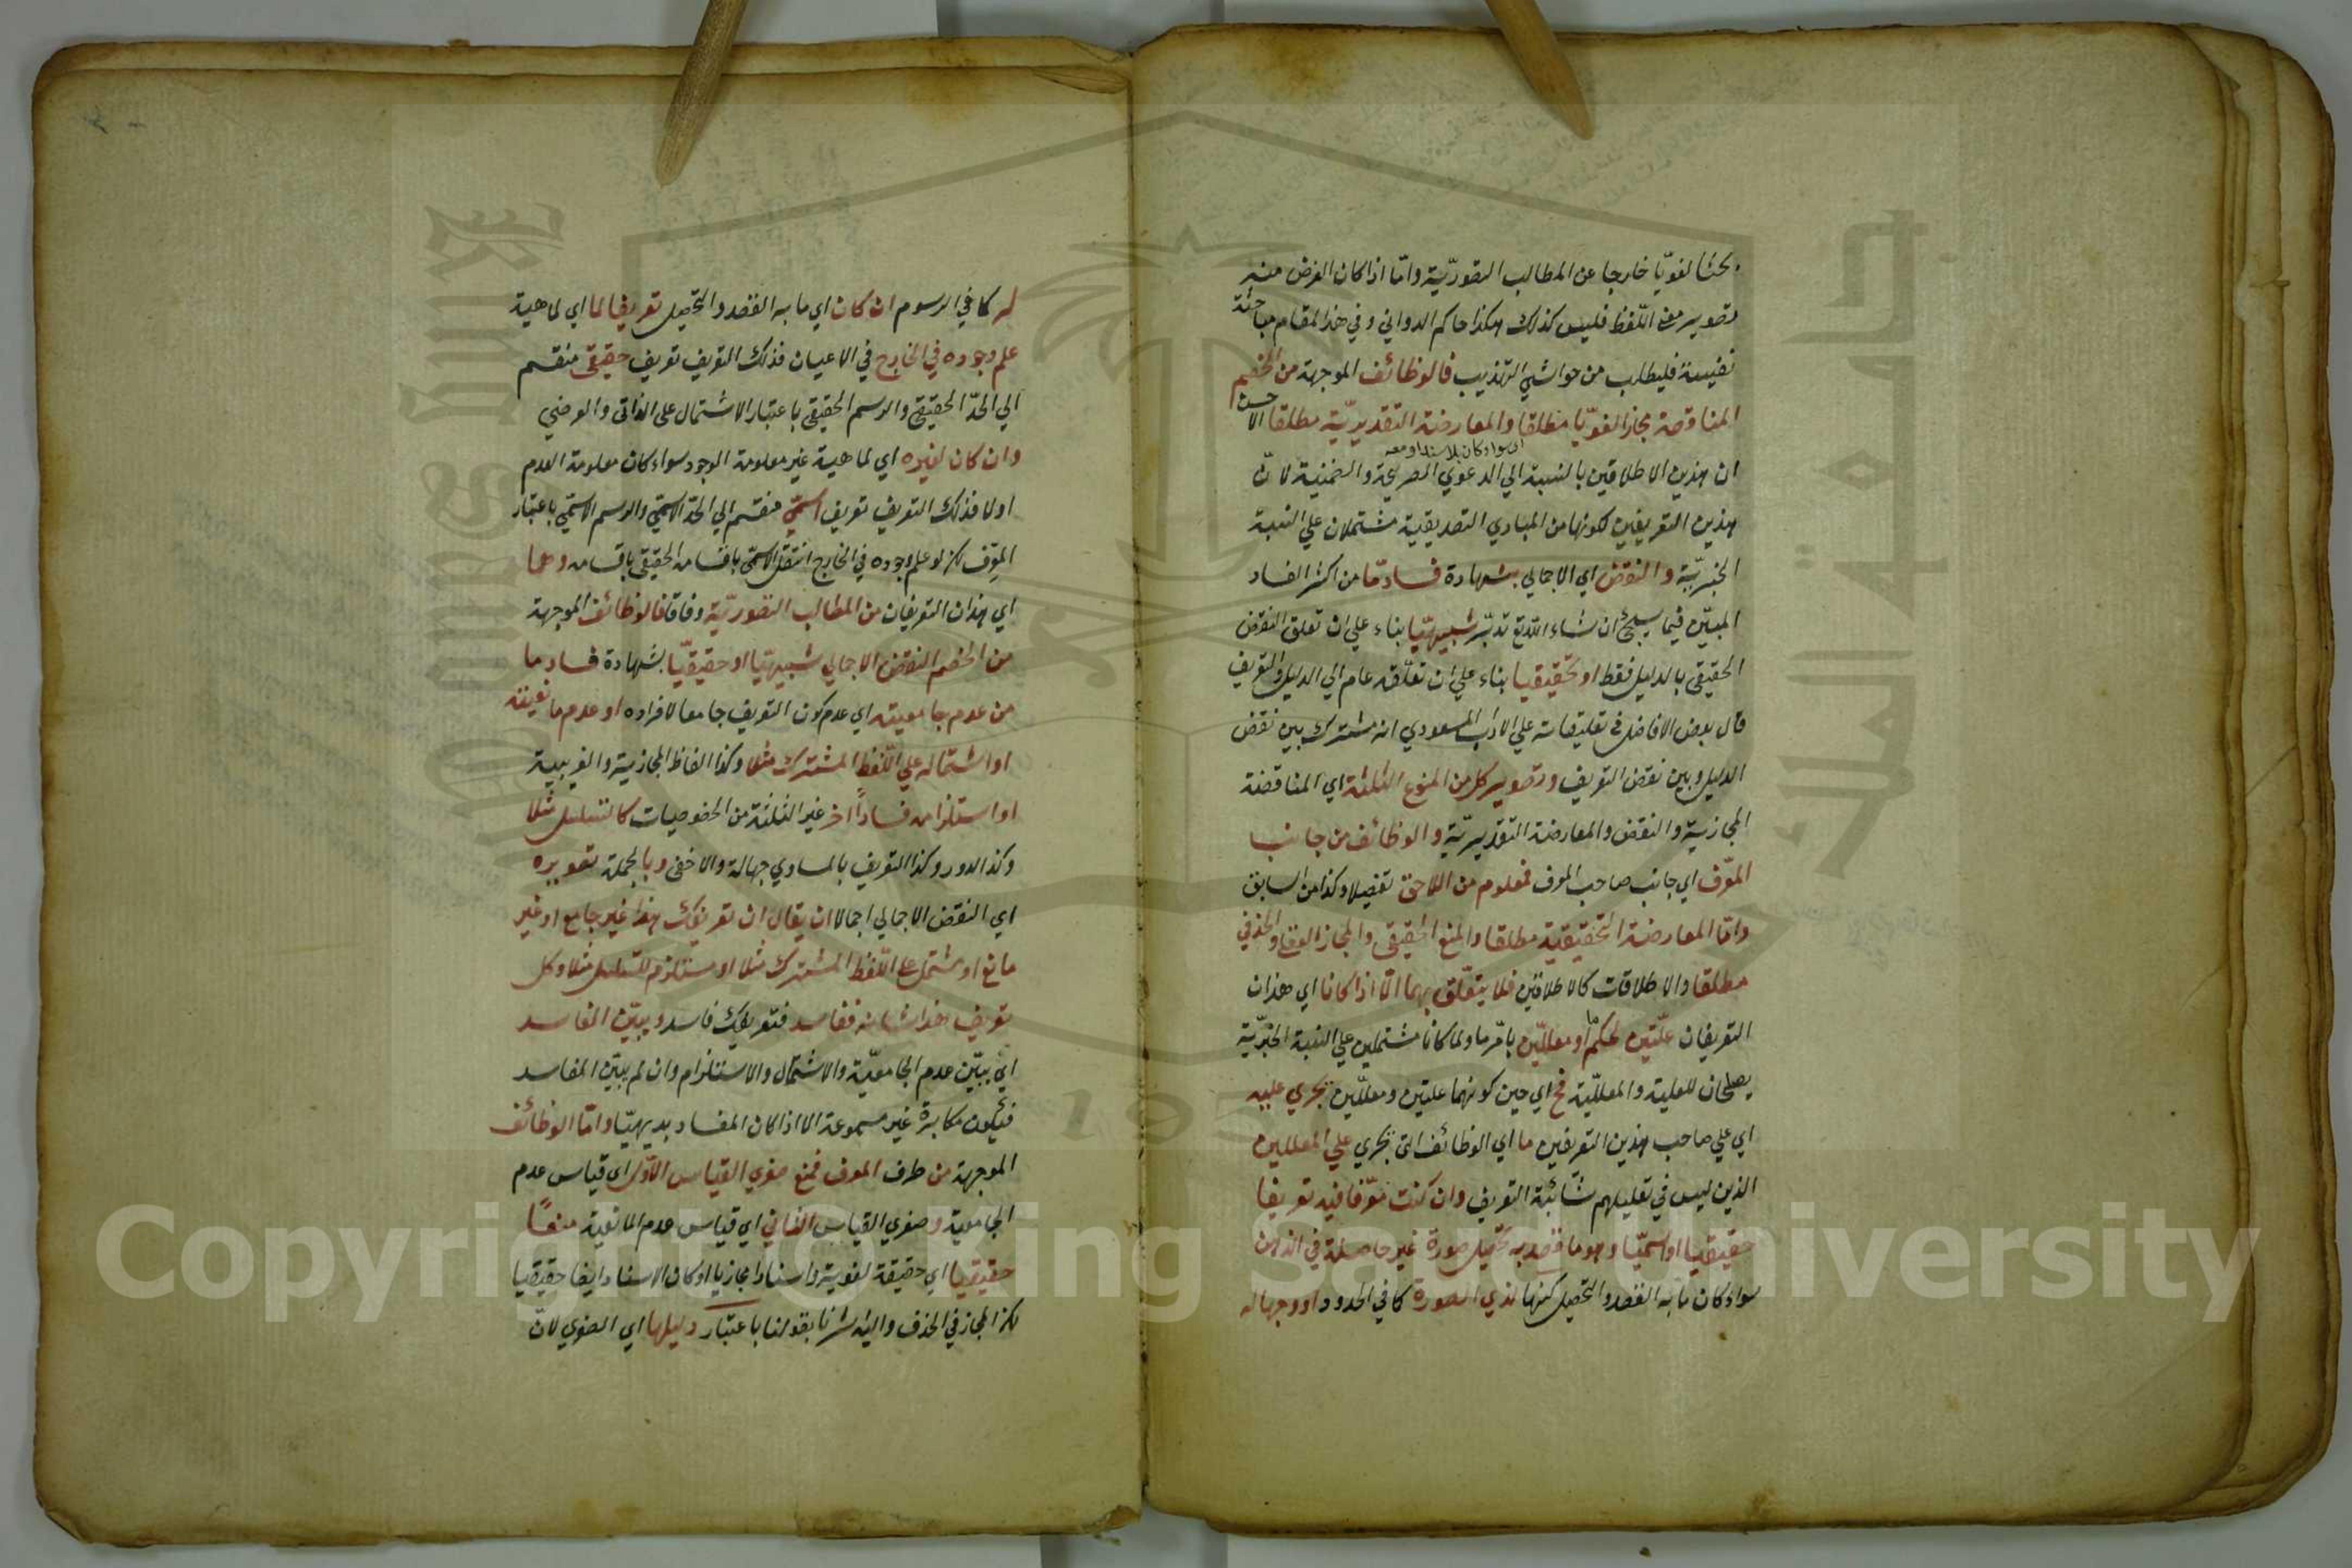 بحثا لغويا خارجا عن المطالب التصورية واما اذا كان الغرض منه
تصوير معنى اللفظ فليس كذلك هكذا حاكم الدواني وفي هذا المقام مباحثة
نفيسة فليطلب من حواشي التهذيب فالوظائف الموجهة من الخصم
المناقضة مجازا لغويا مطلقا والمعارضة التقديرية مطلقا الا
اي سواء كان بلا سند او معه
ان هذين الاطلاقين بالنسبة الي الدعوي الصريحة والضمنية لانّ
هذين التعريفين لكونها من المبادي التصديقية مشتملان علي النسبة
الخبريّة والنقض اي الاجمالي بشهادة فساد مّا من اكثر الفساد
المبيّن فيما سيجئ ان شاء الله تع تدبّر شبيهيّا بناء علي ان تعلق النقض
الحقيقي بالدليل فقط او تحقيقيا بناء علي ان تعلّقه عام الي الدليل والتعريف
قال بعض الافاضل في تعليقاته علي الاداب المسعودي انه مشترك بين نقض
الدليل وبين نقض التعريف وتصوير كل من المنوع الثلثة اي المناقضة
المجازية والنقض والمعارضة التقديريّة والوظائف من جانب
المعرّف اي جانب صاحب المعرف فمعلوم من اللاحق تفصيلا وكذا من السابق
وامّا المعارضة التحقيقية مطلقا والمنع الحقيقي والمجاز العقلي والحذفي
مطلقا والاطلاقات كالاطلاقين فلا يتعلّق بهما الّا اذا كانا اي هذان
التعريفان علّتين لحكم ما او معلّلين بامّر ما ولما كانا مشتملين علي النسبة الخبريّة
يصلحان للعلية والمعللّية فح اي حين كونهما علتين ومعللّين يجري عليه
اي علي صاحب هذين التعريفين ما اي الوظائف التى يجري علي المعللين
الذين ليس في تعليلهم شائبة التعريف وان كنت معرّفا فيه تعريفا
حقيقيا او اسميّا وهو ما قصد به تحصيل صورة غير حاصلة في الذهن
سواء كان ما به القصد والتحصيل كنهها لذي الصورة كما في الحدود او وجها له
له كما في الرسوم ان كان اي ما به القصد والتحصيل تعريفا لما اي لماهية
علم وجوده في الخارج في الاعيان فذلك التعريف تعريف حقيقي منقسم
الي الحدّ الحقيقي والرسم الحقيقي باعتبار الاشتمال على الذاتى والعرضي
وان كان لغيره اي لماهية غير معلومة الوجود سواء كان معلومة العدم
اولا فذلك التعريف تعريف اسمّي منقسم الي الحدّ الاسمّي والرسم الاسمّي باعتبار
المعرّف لكن لو علم وجوده في الخارج انتقل الاسمّي باقسامه الحقيقي باقسامه وهما
اي هذان التعريفان من المطالب التصوريّة وفاقا فالوظائف الموجهة
من الخصم النقض الاجمالي شبيهيّا او حقيقيّا بشهادة فساد ما
من عدم جامعيته اي عدم كون التعريف جامعا لافراده او عدم مانعيته
او اشتماله علي اللّفظ المشترك مثلا وكذا الفاظ المجازية والغريبة
او استلزامه فسادا اخر غير الثلثة من الخصوصيات كالتسلسل مثلا
وكذا الدور وكذا التعريف بالمساوي جهالة والاخفى وبالجملة تصويره
اي النقض الاجمالي اجمالا ان يقال ان تعريفك هذا غير جامع او غير
مانع او مشتمل علي اللّفظ المشترك مثلا او مستلزم للتسلسل مثلا وكل
تعريف هذا شانه ففاسد فتعريفك فاسد ويبيّن المفاسد
اي يبيّن عدم الجامعيّة والاشتمال والاستلزام وان لم يبيّن المفاسد
فيكون مكابرة غير مسموعة الا اذا كان الفساد بديهيّا وامّا الوظائف
الموجهة من طرف المعرف فمنع صغري القياس الاوّل اي قياس عدم
الجامعية وصغري القياس الثاني اي قياس عدم المانعية منعًا
حقيقيا اي حقيقة لغوية واسنادا مجازيا او كان الاسناد ايضا حقيقيا
لكن المجاز في الحذف واليه اشرنا بقولنا باعتبار دليلها اي الصغري لانّ
Copyright © King Saud University